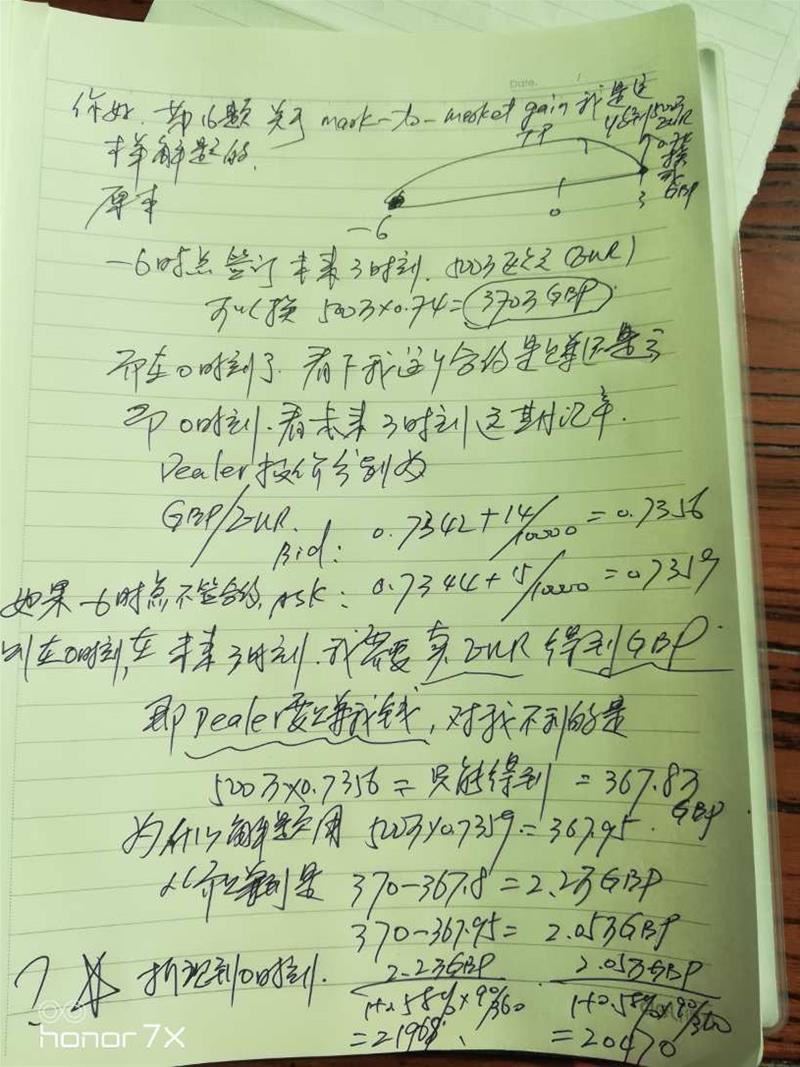 Date.
你好, 第16题 关于 mark-to-market gain 我是这
样解题的.
原来
-6
0
3
GBP
-6时点签订 未来3时刻. 500万欧元(EUR)
可以换 500万×0.74=370万GBP
而在0时刻了. 看下我这个合约是赚还是亏
即0时刻.看未来3时刻 这期汇率.
Dealer报价分别为
GBP/EUR.
Bid: 0.7342+14/10000=0.7356
如果-6时点不签合约, ASK: 0.7344+15/10000=0.7359
则在0时刻,在 未来3时刻.我需要卖EUR 得到GBP.
即Dealer要赚我钱,对我不利的是
500万×0.7356= 只能得到 =367.8万
GBP
为什么解题用 500万×0.7359=367.95.
从而赚到是 370-367.8=2.2万GBP
370-367.95= 2.05万GBP
? 折现到0时刻. 2.2万GBP 2.05万GBP
1+0.58%×90/360 1+0.58%×90/360
=21968. =20470
honor 7X